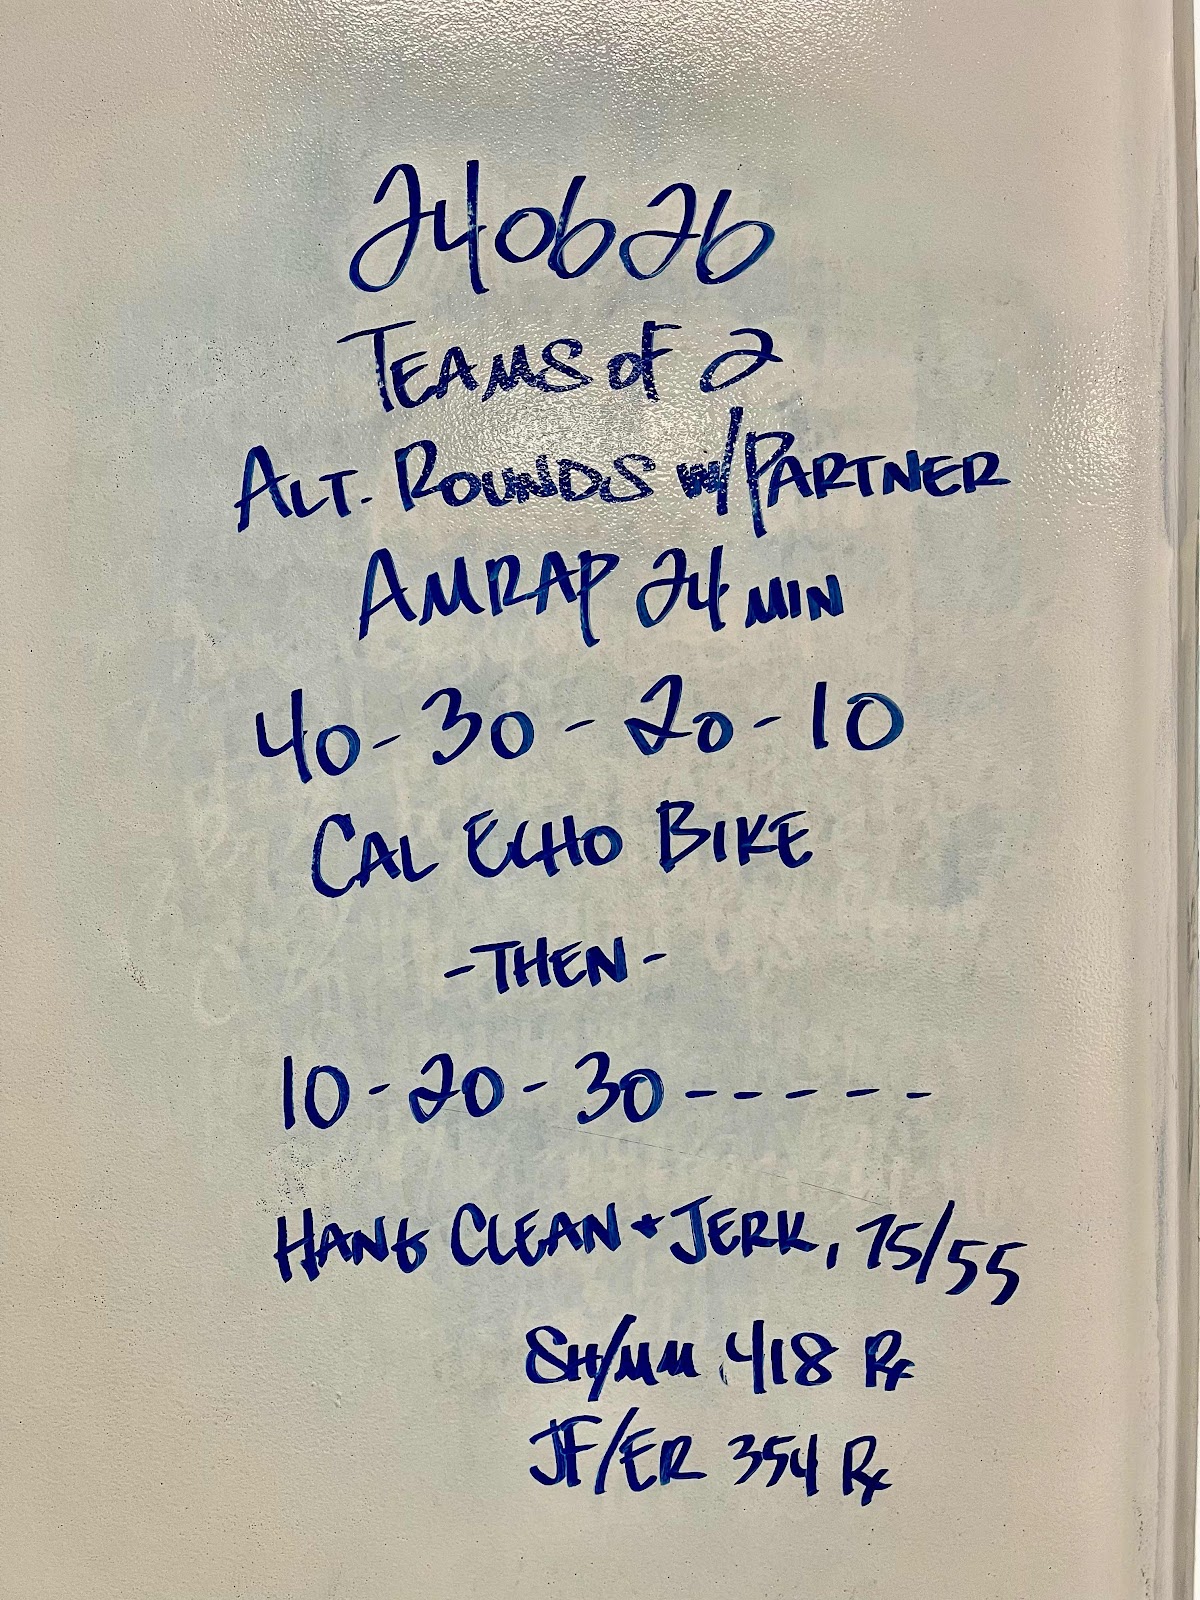 240626
TEAMS OF 2
ALT. ROUNDS W/PARTNER
AMRAP 24 MIN
40 - 30 - 20 - 10
CAL ECHO BIKE
- THEN -
10 - 20 - 30 - - - - -
HANG CLEAN + JERK, 75/55
SH/MM 418 Rx
JF/ER 354 Rx